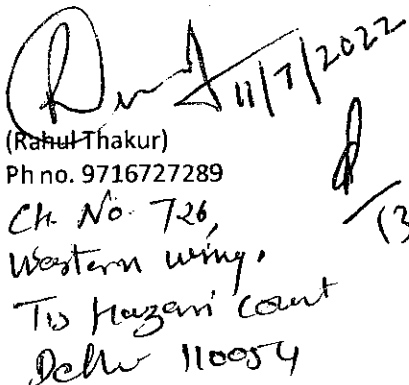 11/7/2022
(Rahul Thakur)
Ph no. 9716727289
Ch. No. 726,
Western wing,
Tis Hazari Court
Delhi 110054